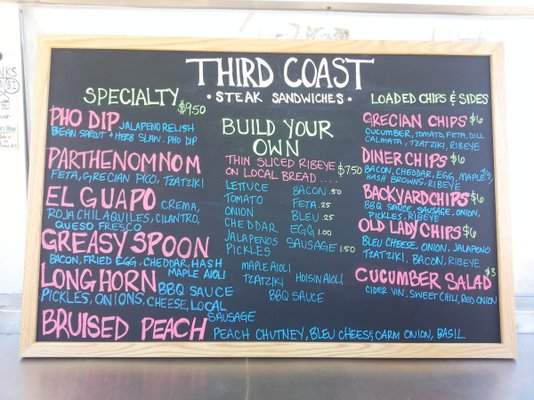 THIRD COAST
• STEAK SANDWICHES •
SPECIALTY $9.50
PHO DIP JALAPENO RELISH
BEAN SPROUT + HERB SLAW, PHO DIP
PARTHENOMNOM
FETA, GRECIAN PICO, TZATZIKI
EL GUAPO CREMA,
ROJA CHILAQUILES, CILANTRO,
QUESO FRESCO
GREASY SPOON
BACON, FRIED EGG, CHEDDAR, HASH
MAPLE AIOLI
LONGHORN BBQ SAUCE
PICKLES, ONIONS, CHEESE, LOCAL
SAUSAGE
BRUISED PEACH PEACH CHUTNEY, BLEU CHEESE, CARM ONION, BASIL
BUILD YOUR
OWN
THIN SLICED RIBEYE
ON LOCAL BREAD .... $7.50
LETTUCE
TOMATO
ONION
CHEDDAR
JALAPENOS
PICKLES
BACON .50
FETA .25
BLEU .25
EGG 1.00
SAUSAGE 1.50
MAPLE AIOLI
TZATZIKI HOISIN AIOLI
BBQ SAUCE
LOADED CHIPS & SIDES
GRECIAN CHIPS $6
CUCUMBER, TOMATO, FETA, DILL
CALMATA, TZATZIKI, RIBEYE
DINER CHIPS $6
BACON, CHEDDAR, EGG, MAPLE
HASH BROWNS, RIBEYE
BACKYARD CHIPS $6
BBQ SAUCE, SAUSAGE, ONION,
PICKLES, RIBEYE
OLD LADY CHIPS $6
BLEU CHEESE, ONION, JALAPENO
TZATZIKI, BACON, RIBEYE
CUCUMBER SALAD $3
CIDER VIN, SWEET CHILI, RED ONION